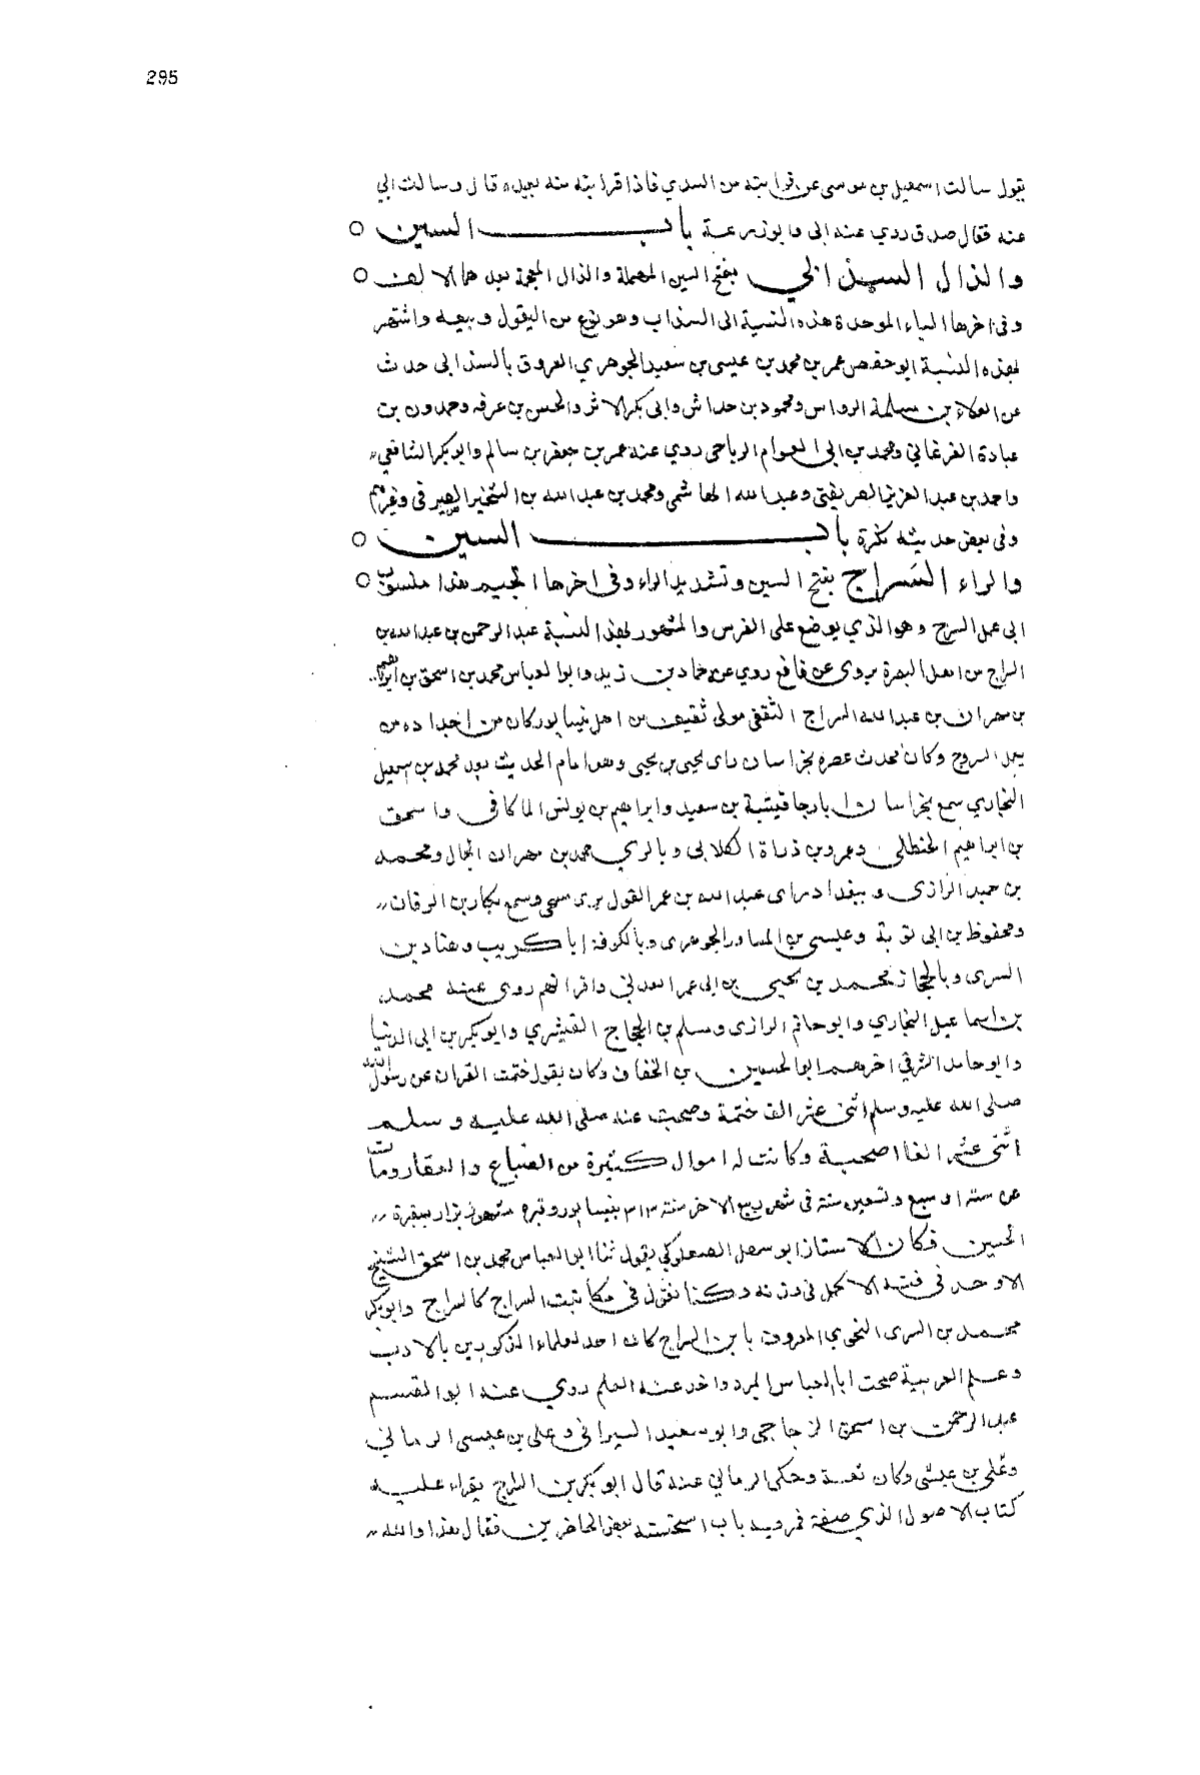 295
يقول سالت اسمعيل بن موسى عن قرابته من السدي فاذا قرابته منه بعيده قال وسالت ابي
عنه فقال صدوق روي عنه ابى وابو زرعة باب السين
والذال السذابي بفتح السين المهملة والذال المعجمة بعدهما الالف
وفى اخرها الباء الموحدة هذه النسبة الى السذاب وهو نوع من البقول وبيعه واشتهر
بهذه النسبة ابو حفص عمر بن محمد بن عيسى بن سعيد الجوهري المعروف بالسذابى حدث
عن العلاء بن مسلمة الرواس ومحمود بن خداش وابى بكر الاثرم والحسن بن عرفه وحمدون بن
عبادة الفرغاني ومحمد بن ابى العوام الرياحى روي عنه عمر بن جعفر بن سالم وابو بكر الشافعي
واحمد بن عبد العزيز الصريفينى وعبد الله الهاشمي ومحمد بن عبد الله بن الشخير الصيرفى وغيرهم
وفى بعض حديثه نكرة باب السين
والراء السراج بفتح السين وتشديد الراء وفى اخرها الجيم هذا منسوب
الى عمل السرج وهو الذي يوضع على الفرس والمشهور بهذا النسبة عبد الرحمن بن عبد الله بن
السراج من اهل البصرة يروى عن نافع روي عنه حماد بن زيد وابو العباس محمد بن اسحق بن ابراهيم
بن مهران بن عبد الله السراج الثقفى مولى ثقيف من اهل نيسابور كان من اجداده من
يعمل السروج وكان محدث عصره بخراسان راى يحيى بن يحيى وهو امام الحديث بعد محمد بن اسمعيل
البخاري سمع بخراسان ابا رجا قتيبة بن سعيد وابراهيم بن يوسف الماكانى واسحق
بن ابراهيم الحنظلى وعمرو بن زرارة الكلابى وبالري محمد بن مهران الجمال ومحمد
بن حميد الرازى وببغداد راى عبد الله بن عمر القواريرى وسمع بكار بن الريان
ومحفوظ بن ابى توبة وعيسى بن المساور الجوهرى وبالكوفة ابا كريب وهناد بن
السرى وبالحجاز محمد بن يحيى بن ابى عمر العدني واقرانهم روى عنه محمد
بن اسماعيل البخاري وابو حاتم الرازى ومسلم بن الحجاج القشيري وابو بكر بن ابى الدنيا
وابو حامد الشرقي اخرهم ابو الحسين بن الخفاف وكان يقول ختمت القران عن رسول الله
صلى الله عليه وسلم اثنى عشر الف ختمة وضحيت عنه صلى الله عليه وسلم
اثنى عشر الفا اضحية وكانت له اموال كثيرة من الضياع والعقار ومات
عن ست او سبع وتسعين سنة فى شهر ربيع الاخر سنة ٣١٣ بنيسابور وقبره مشهور يزار بمقبرة
الحسين فكان الاستاذ ابو سهل الصعلوكي يقول ثنا ابو العباس محمد بن اسحق الشيخ
الاوحد فى فنه الاكمل فى وزنه وكنا نقول فى مكاتبت السراج كالسراج وابو بكر
محمد بن السرى النحوي المعروف بابن السراج كان احد العلماء المذكورين بالادب
وعلم العربية صحب ابا العباس المبرد واخذ عنه العلم روي عنه ابو القسم
عبد الرحمن بن اسحق الزجاجى وابو سعيد السيرافى وعلى بن عيسى الرماني
وعلى بن عيسى وكان ثقة وحكى الرماني عنه قال ابو بكر بن السراج يقراء عليه
كتاب الاصول الذي صنفه فمر فيه باب استحسنه بعض الحاضرين فقال هذا والله